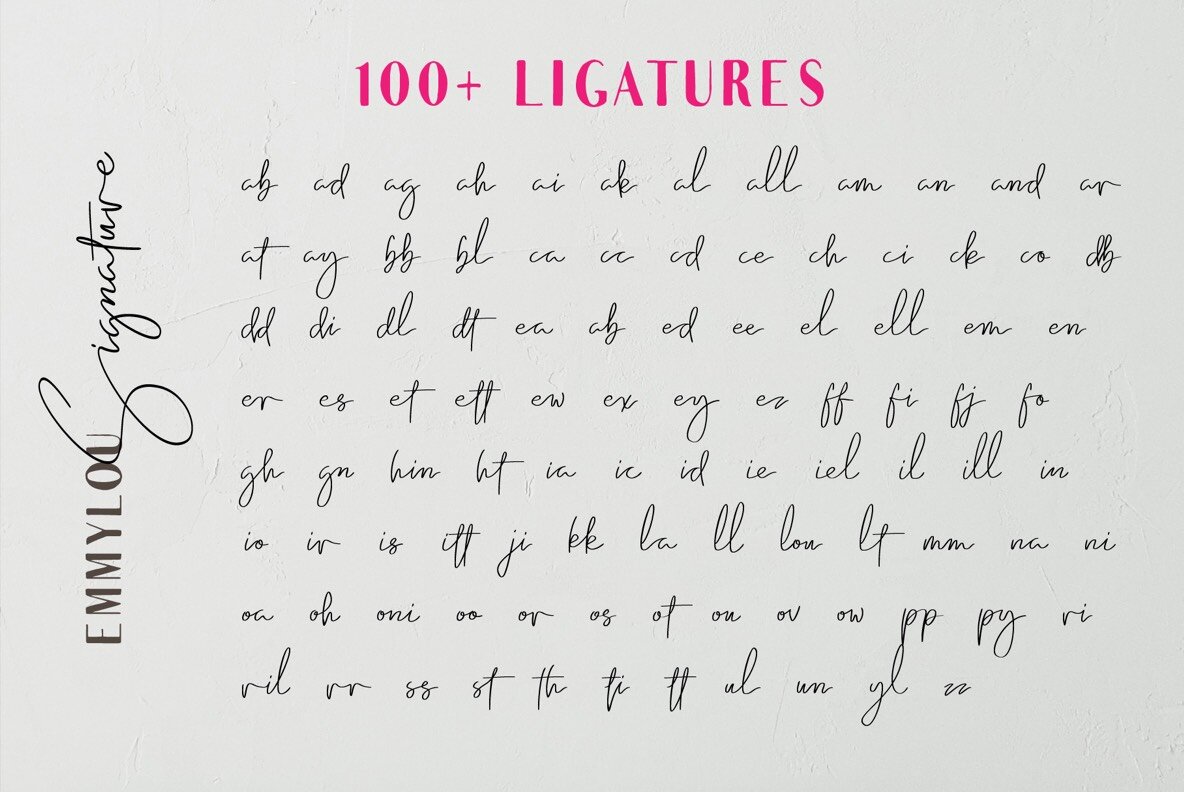 100+ LIGATURES
EMMYLOU Signature
ab ad ag ah ai ak al all am an and ar
at ay bb bl ca cc cd ce ch ci ck co db
dd di dl dt ea ab ed ee el ell em en
er es et ett ew ex ey ez ff fi fj fo
gh gn hin ht ia ic id ie iel il ill in
io ir is itt ji kk la ll lou lt mm na ni
oa oh oni oo or os ot ou ov ow pp py ri
ril rr ss st th ti tt ul un yl zz